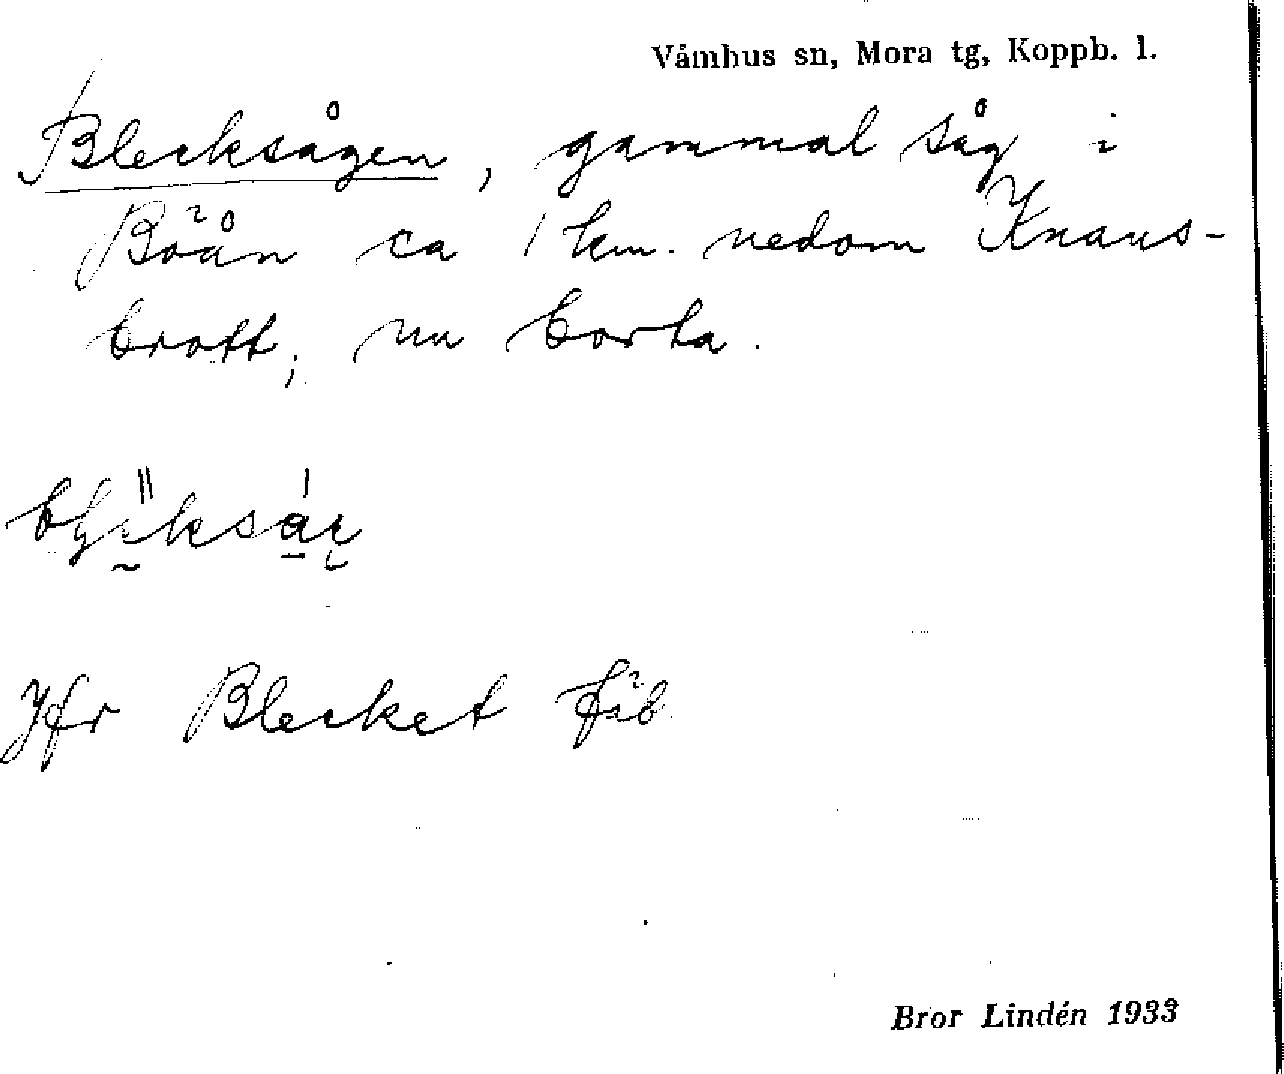 Våmhus sn, Mora tg, Koppb. l.
Blecksågen, gammal såg i
Böån ca 1 km. nedom Knaus-
brott, nu borta.
Jfr Blecket fäb.
Bror Lindén 1933